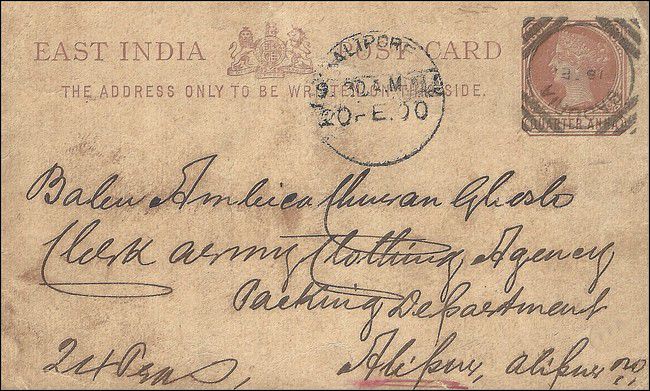 EAST INDIA POST CARD
THE ADDRESS ONLY TO BE WRITTEN ON THIS SIDE.
ALIPORE
10 A.M.
20-FE.00
QUARTER ANNA
Babu Ambica Churan Ghosh
Clerk army Clothing Agency
Packing Department
24 Pgns, Alipur, alipur P.O.